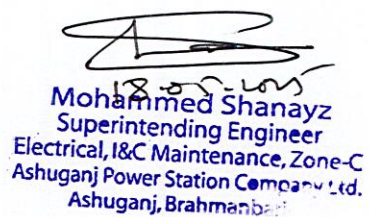 18-05-2025
Mohammed Shanayz
Superintending Engineer
Electrical, I&C Maintenance, Zone-C
Ashuganj Power Station Company Ltd.
Ashuganj,